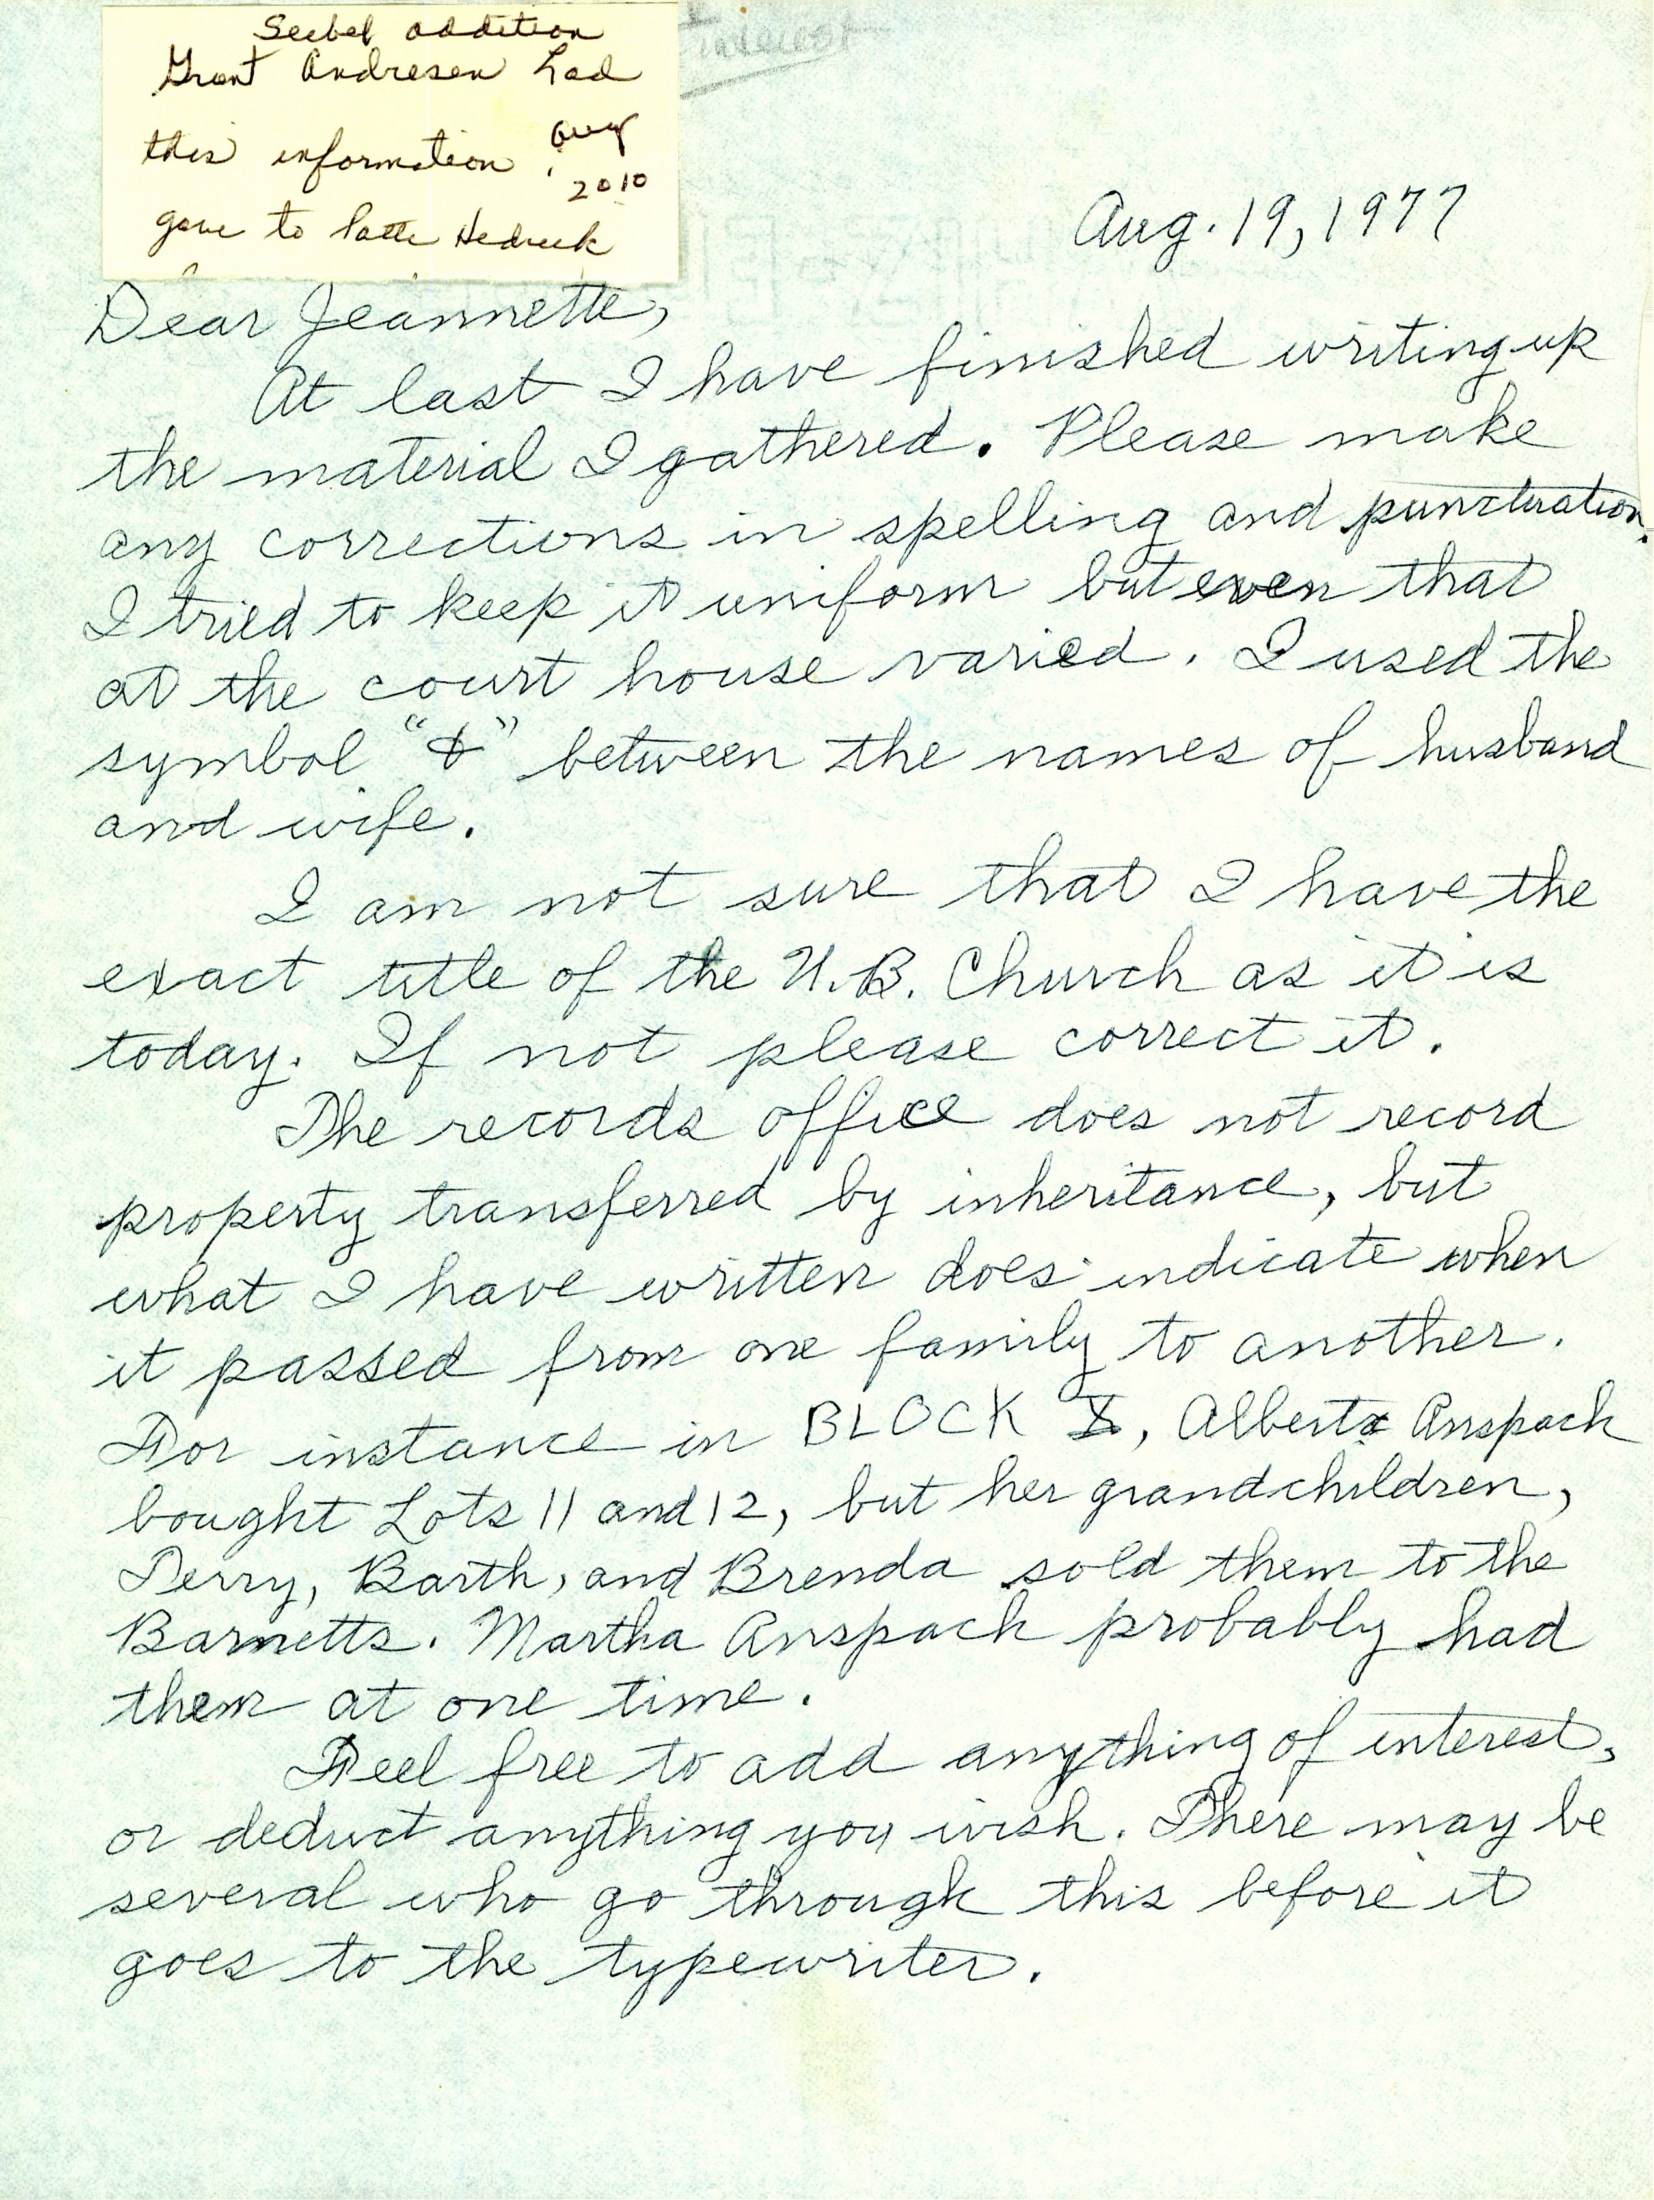 Seebel addition
Grant Andresen had
this information Aug
2010
gave to Patte Hedrick
interest
Aug. 19, 1977
Dear Jeannette,
At last I have finished writing up
the material I gathered. Please make
any corrections in spelling and punctuation.
I tried to keep it uniform but even that
at the court house varied. I used the
symbol "&" between the names of husband
and wife.
I am not sure that I have the
exact title of the U.B. Church as it is
today. If not please correct it.
The records office does not record
property transferred by inheritance, but
what I have written does indicate when
it passed from one family to another.
For instance in BLOCK , Alberta Anspach
bought Lots 11 and 12, but her grandchildren,
Terry, Barth, and Brenda sold them to the
Barnetts. Martha Anspach probably had
them at one time.
Feel free to add anything of interest,
or deduct anything you wish. There may be
several who go through this before it
goes to the typewriter.